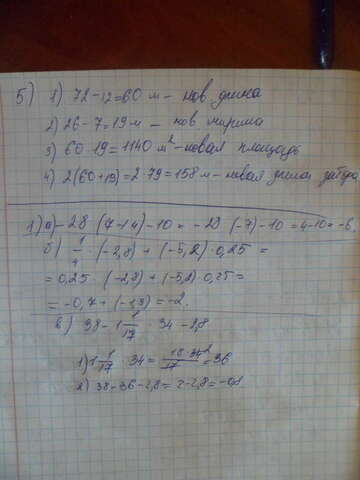 5) 1) 72-12=60 м - нов. длина
2) 26-7=19 м - нов ширина
3) 60·19=1140 м² - новая площадь
4) 2(60+19)=2·79=158 м - новая длина забора
1) а) -28:(7-14)-10 = -28:(-7)-10=4-10=-6.
б) 1/4 · (-2,8) + (-5,2) · 0,25 =
= 0,25 · (-2,8) + (-5,2) · 0,25 =
= -0,7 + (-1,3) = -2.
в) 38 - 1 1/17 · 34 - 2,8
1) 1 1/17 · 34 = 18·34²/17 = 36
2) 38-36-2,8=2-2,8=-0,8